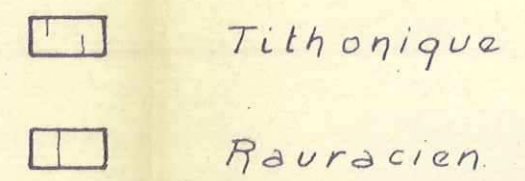 Tithonique
Rauracien.